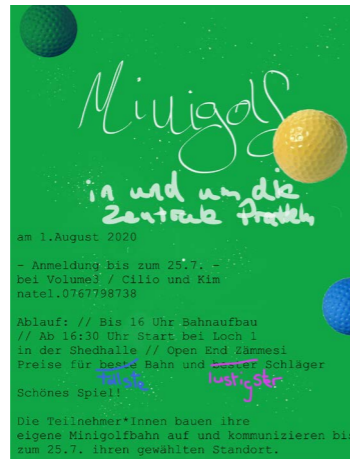 Minigolf
in und um die
Zentrale Pratteln
am 1.August 2020
- Anmeldung bis zum 25.7. -
bei Volume3 / Cilio und Kim
natel.0767798738
Ablauf: // Bis 16 Uhr Bahnaufbau
// Ab 16:30 Uhr Start bei Loch 1
in der Shedhalle // Open End Zämmesi
Preise für beste Bahn und bester Schläger
tollste lustigster
Schönes Spiel!
Die Teilnehmer*Innen bauen ihre
eigene Minigolfbahn auf und kommunizieren bis
zum 25.7. ihren gewählten Standort.